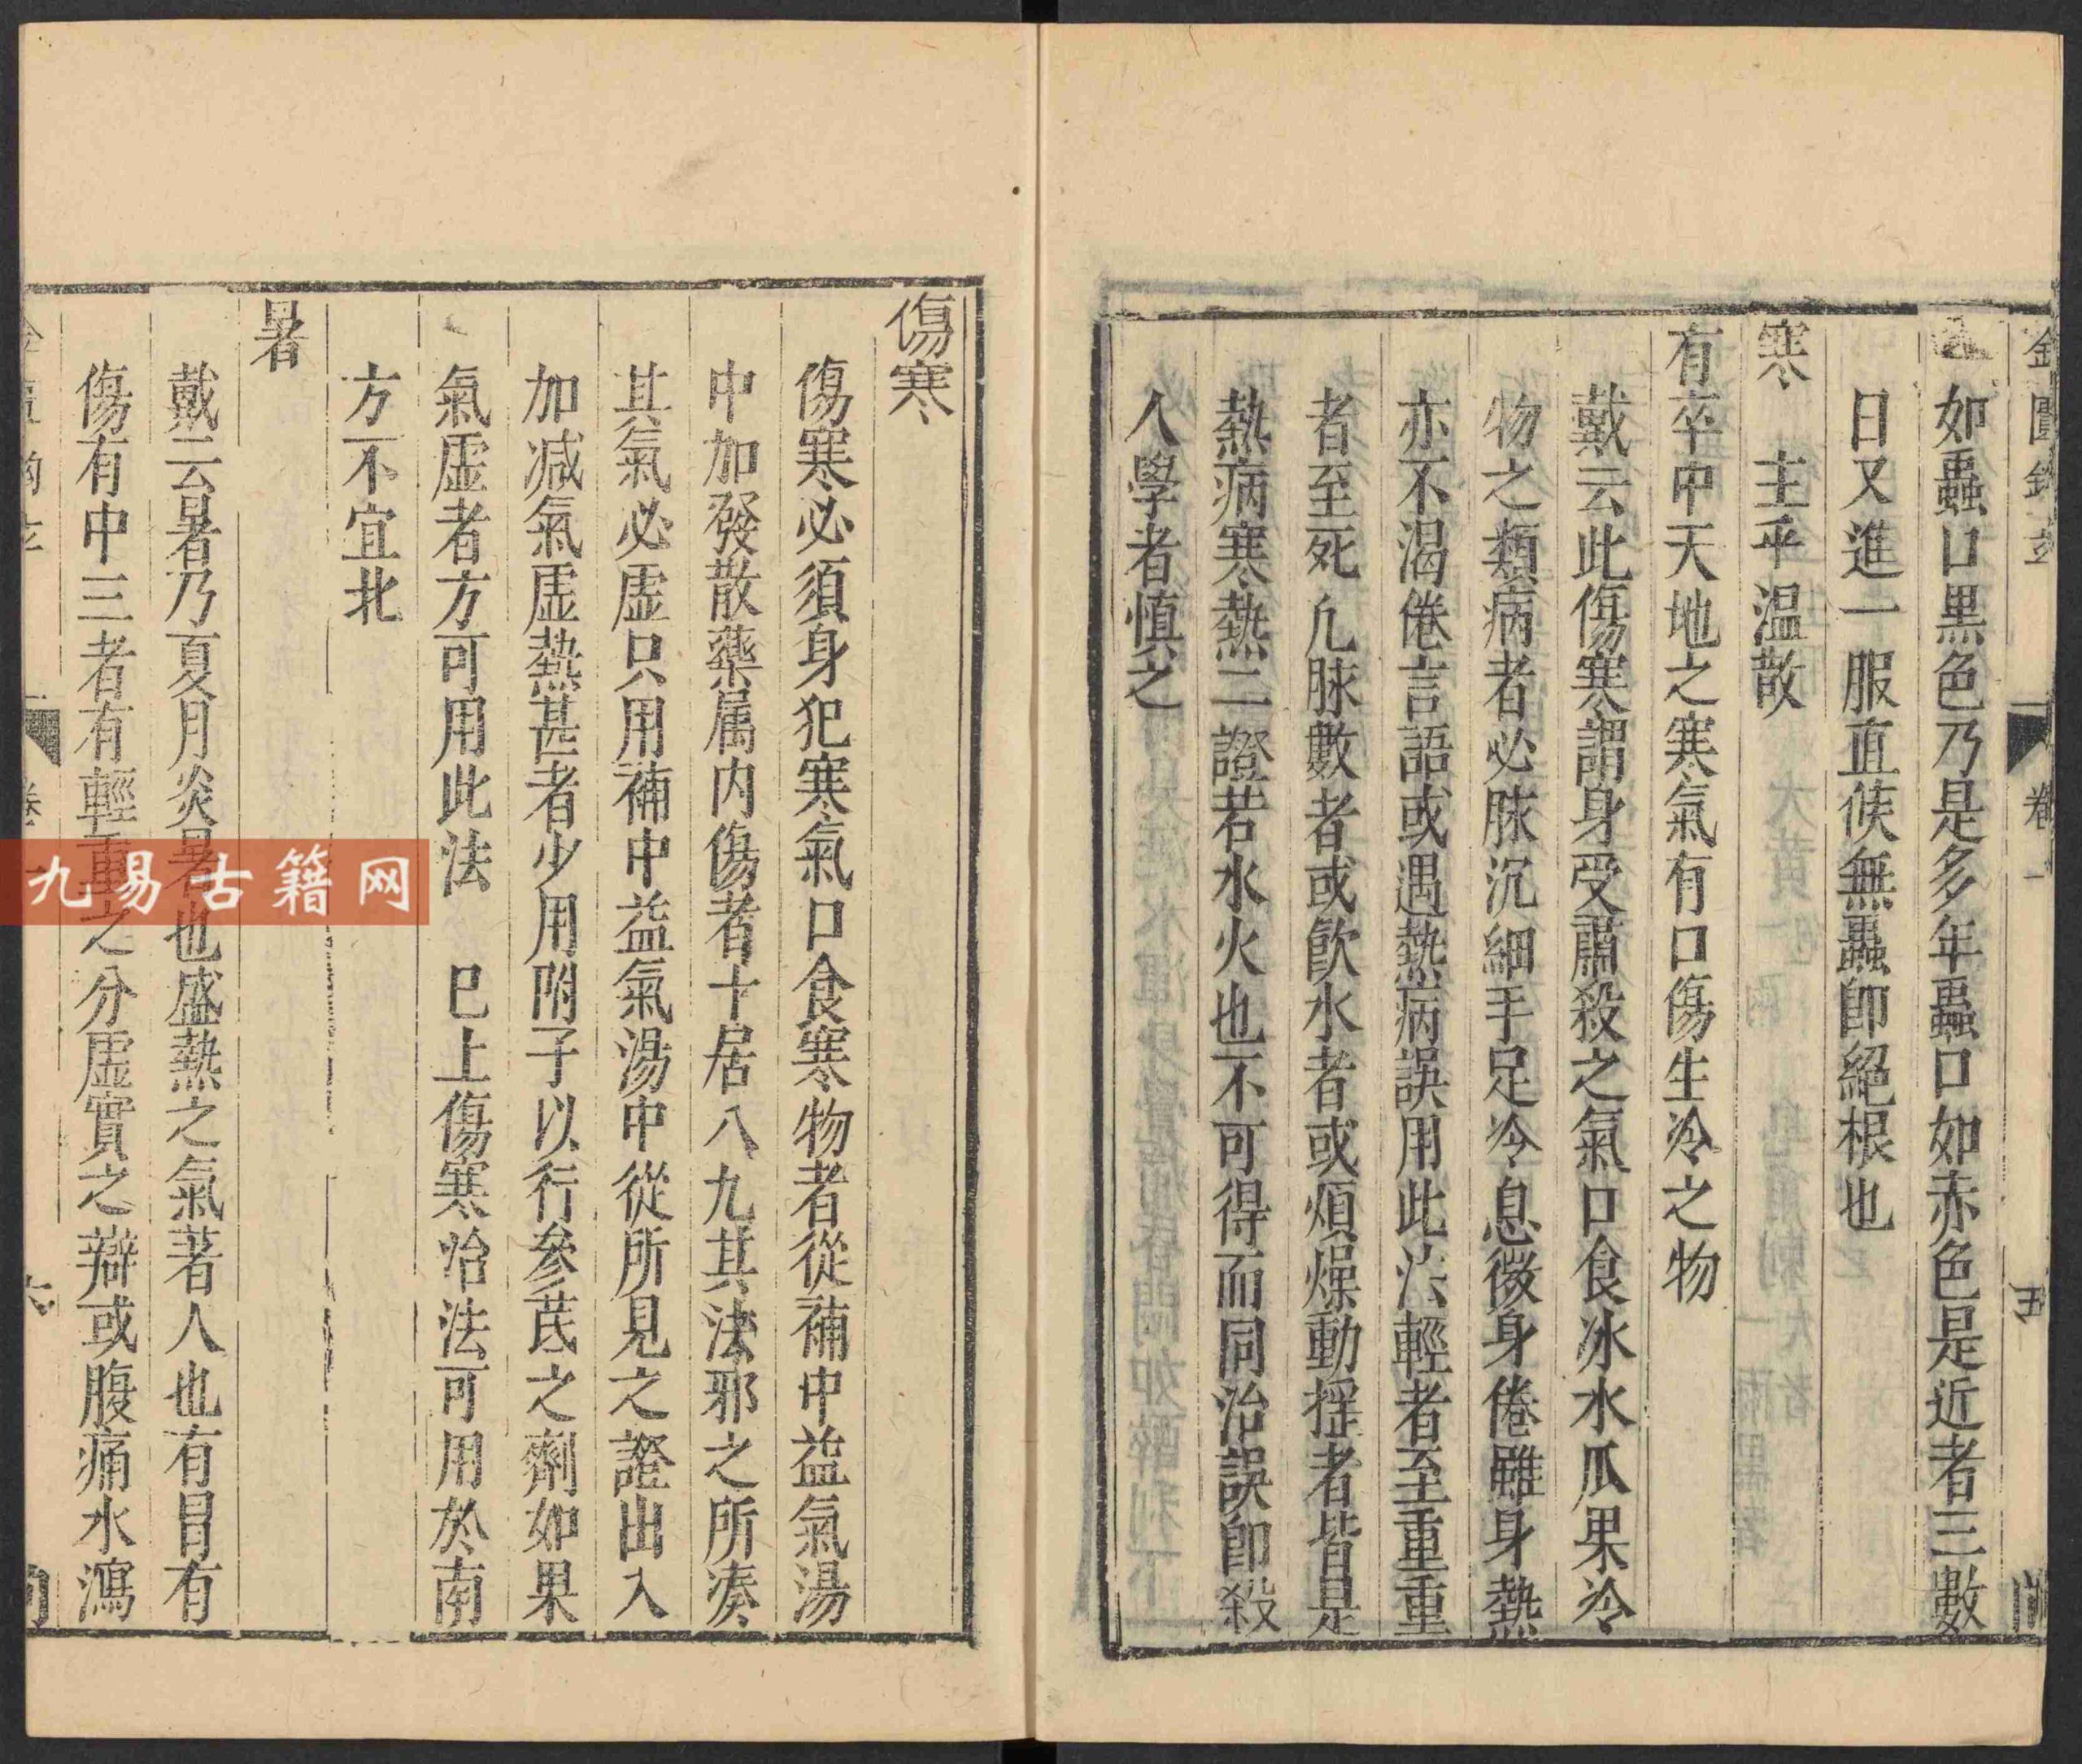 金匱鉤玄 卷一 五
如蟲口黑色乃是多年蟲口如赤色是近者三數
日又進一服直候無蟲卽絕根也
寒 主乎温散
有卒中天地之寒氣有口傷生冷之物
戴云此傷寒謂身受肅殺之氣口食冰水瓜果冷
物之類病者必脉沉細手足冷息微身倦雖身熱
亦不渴倦言語或遇熱病誤用此法輕者至重重
者至死凢脉數者或飮水者或煩燥動揺者皆是
熱病寒熱二證若水火也不可得而同治誤卽殺
人學者慎之
傷寒
傷寒必須身犯寒氣口食寒物者從補中益氣湯
中加發散藥属内傷者十居八九其法邪之所凑
其氣必虚只用補中益氣湯中從所見之證出入
加减氣虚熱甚者少用附子以行參芪之劑如果
氣虚者方可用此法 巳上傷寒治法可用於南
方不宜北
暑
戴云暑乃夏月炎暑也盛熱之氣著人也有冒有
傷有中三者有輕重之分虚實之辯或腹痛水瀉
卷一 六
九易古籍网